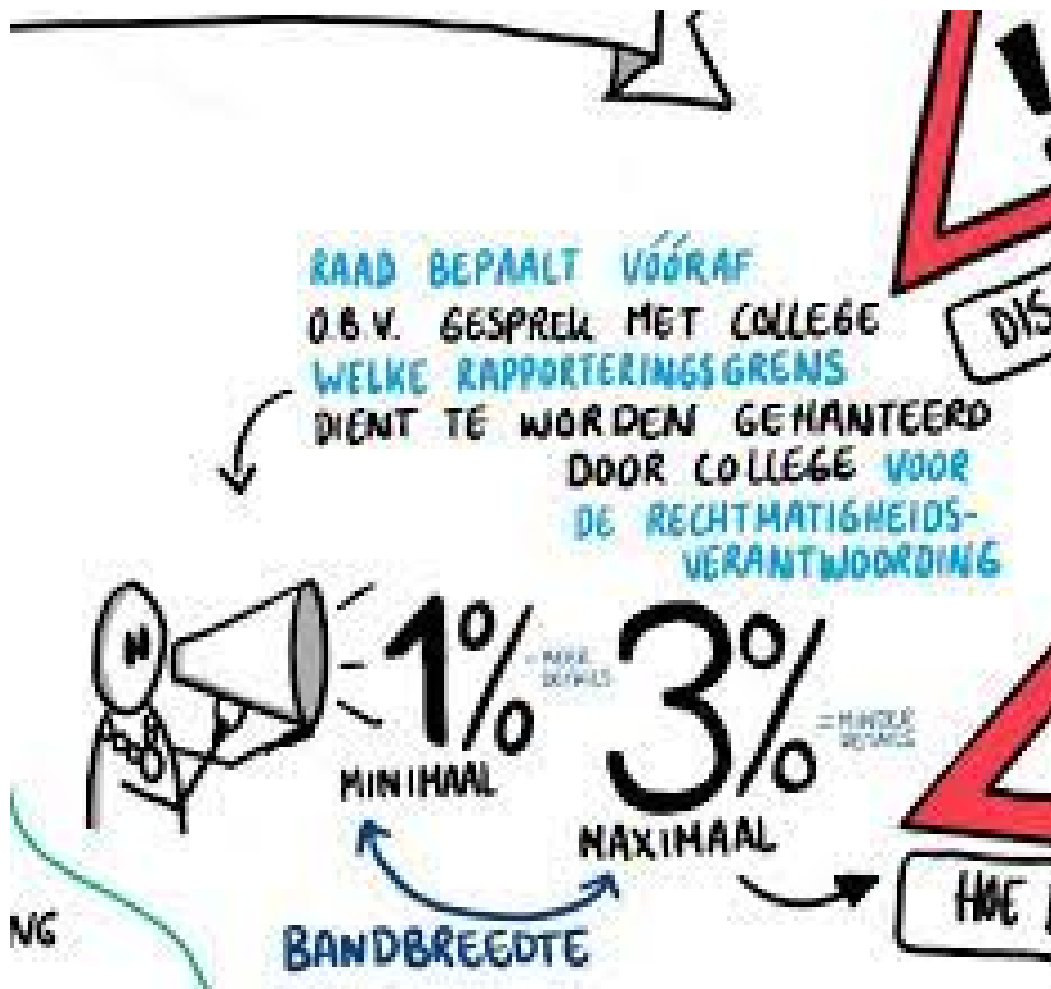 RAAD BEPAALT VÓÓRAF
O.B.V. GESPREK MET COLLEGE
WELKE RAPPORTERINGSGRENS
DIENT TE WORDEN GEHANTEERD
DOOR COLLEGE VOOR
DE RECHTMATIGHEIDS-
VERANTWOORDING
!
DIS
1%
= MEER
DETAILS
MINIMAAL
3%
= MINDER
DETAILS
MAXIMAAL
BANDBREEDTE
NG
HOE